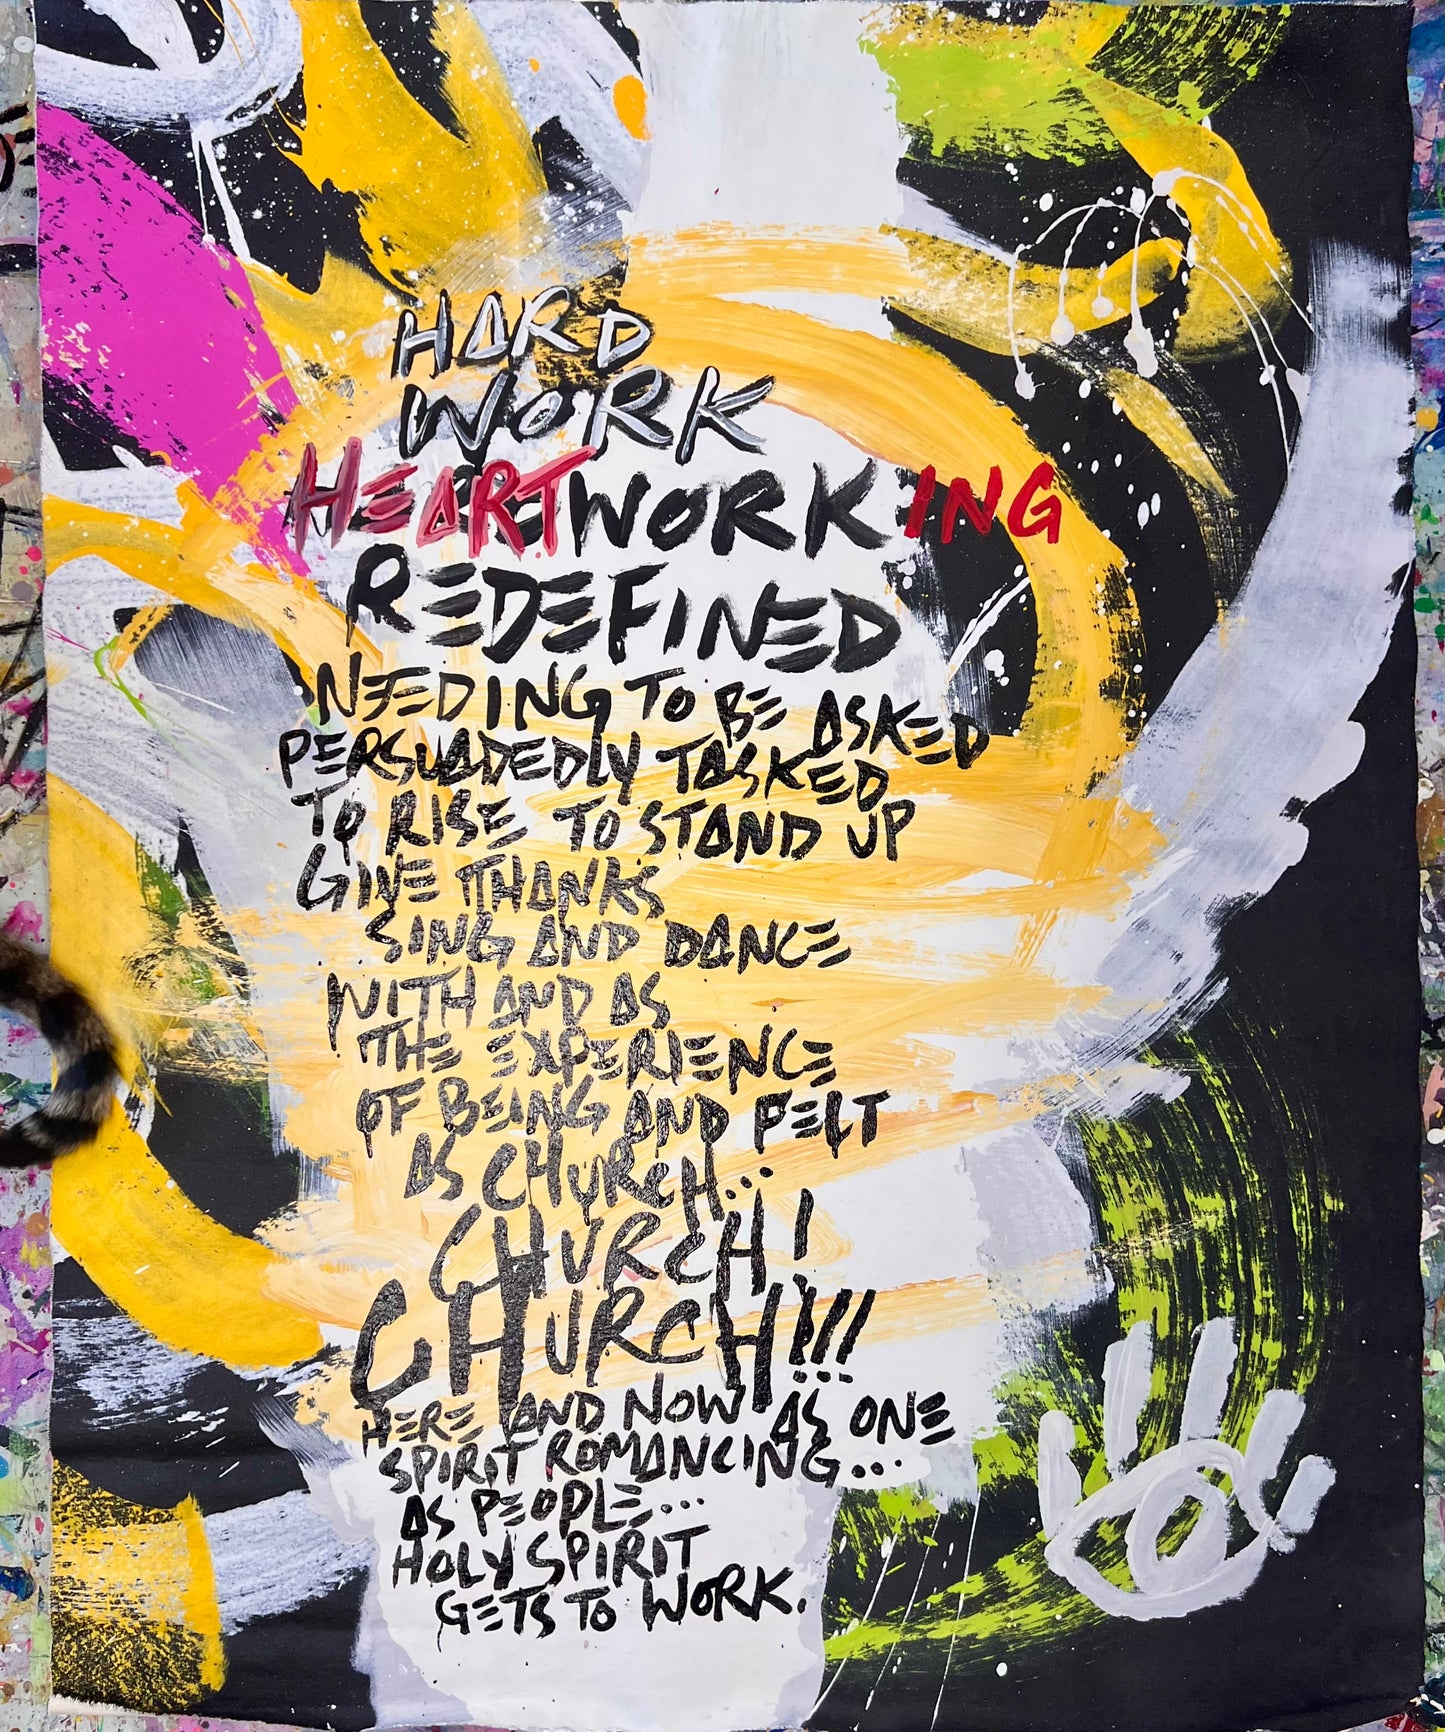 HARD
WORK
HEARTWORKING
REDEFINED
NEEDING TO BE ASKED
PERSUADEDLY TASKED
TO RISE TO STAND UP
GIVE THANKS
SING AND DANCE
WITH AND AS
THE EXPERIENCE
OF BEING AND FELT
AS CHURCH...
CHURCH!
CHURCH!!!!
HERE AND NOW AS ONE
SPIRIT ROMANCING...
AS PEOPLE...
HOLY SPIRIT
GETS TO WORK.